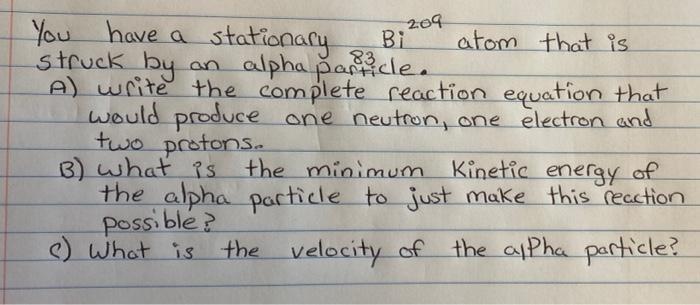 You have a stationary Bi 209 atom that is
83
struck by an alpha particle.
A) write the complete reaction equation that
would produce one neutron, one electron and
two protons.
B) what is the minimum kinetic energy of
the alpha particle to just make this reaction
possible?
C) What is the velocity of the alPha particle?